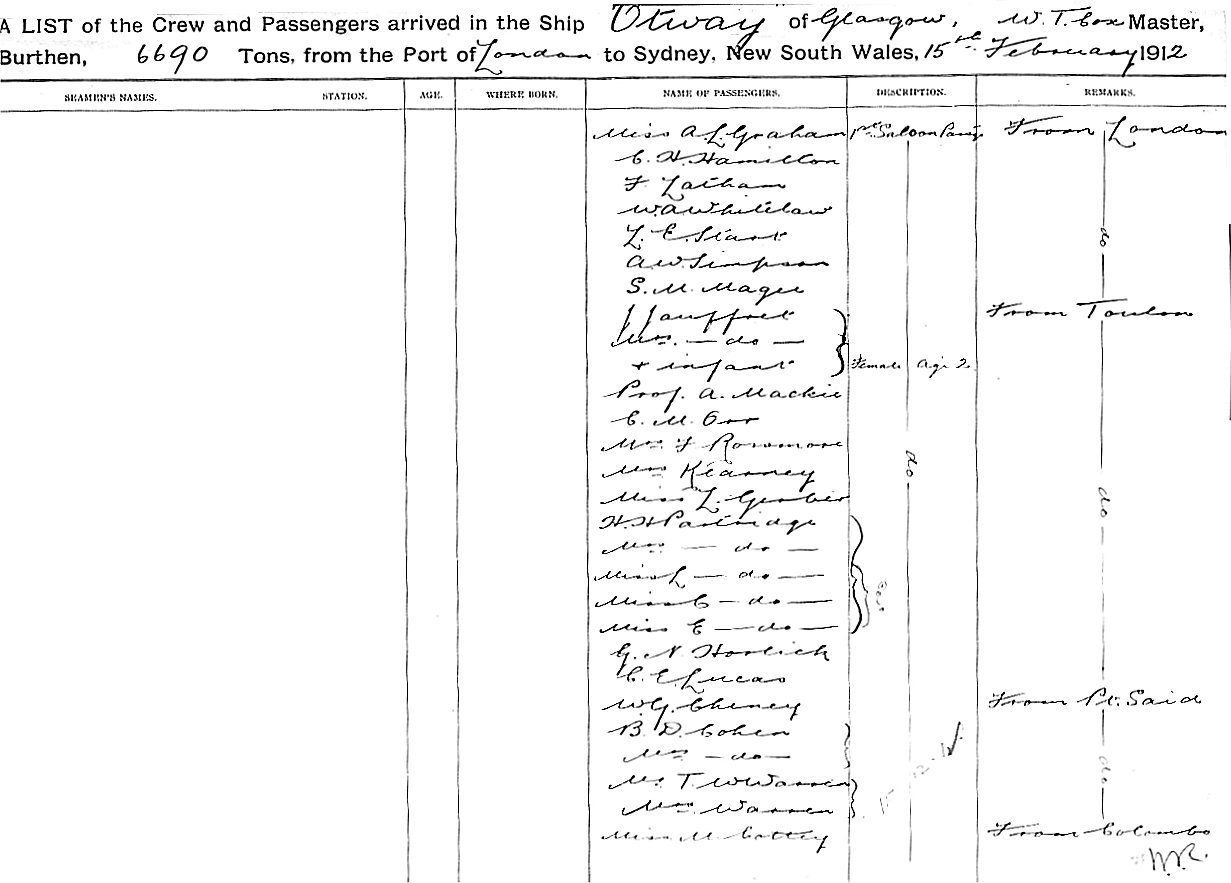 A LIST of the Crew and Passengers arrived in the Ship Otway of Glasgow, W. T. Cox Master,
Burthen, 6690 Tons, from the Port of London to Sydney, New South Wales, 15th February 1912
SEAMEN'S NAMES. STATION. AGE. WHERE BORN. NAME OF PASSENGERS. DESCRIPTION. REMARKS.
Miss A. L. Graham 1st Saloon From London
C. H. Hamilton
F Latham
W. A. Whitelaw
L. E. Stark do
A. W. Simpson
S. M. Magee
J Jauffret From Toulon
Mrs. — do —
+ infant Female Age 2
Prof. A. Mackie
C. M. Orr
Mrs F
do
Mrs Kearney
Miss L. Gerber do
H. H Partridge
Mrs — do —
Miss L — do —
Miss C — do —
Miss E — do —
G. N. Horlick
C. E. Lucas
W. G. Cheney From Pt. Said
B. D. Cohen
Mrs — do — do
Mr T. W Warren
Mrs. Warren
Miss M. Cottey From Colombo
W.R.